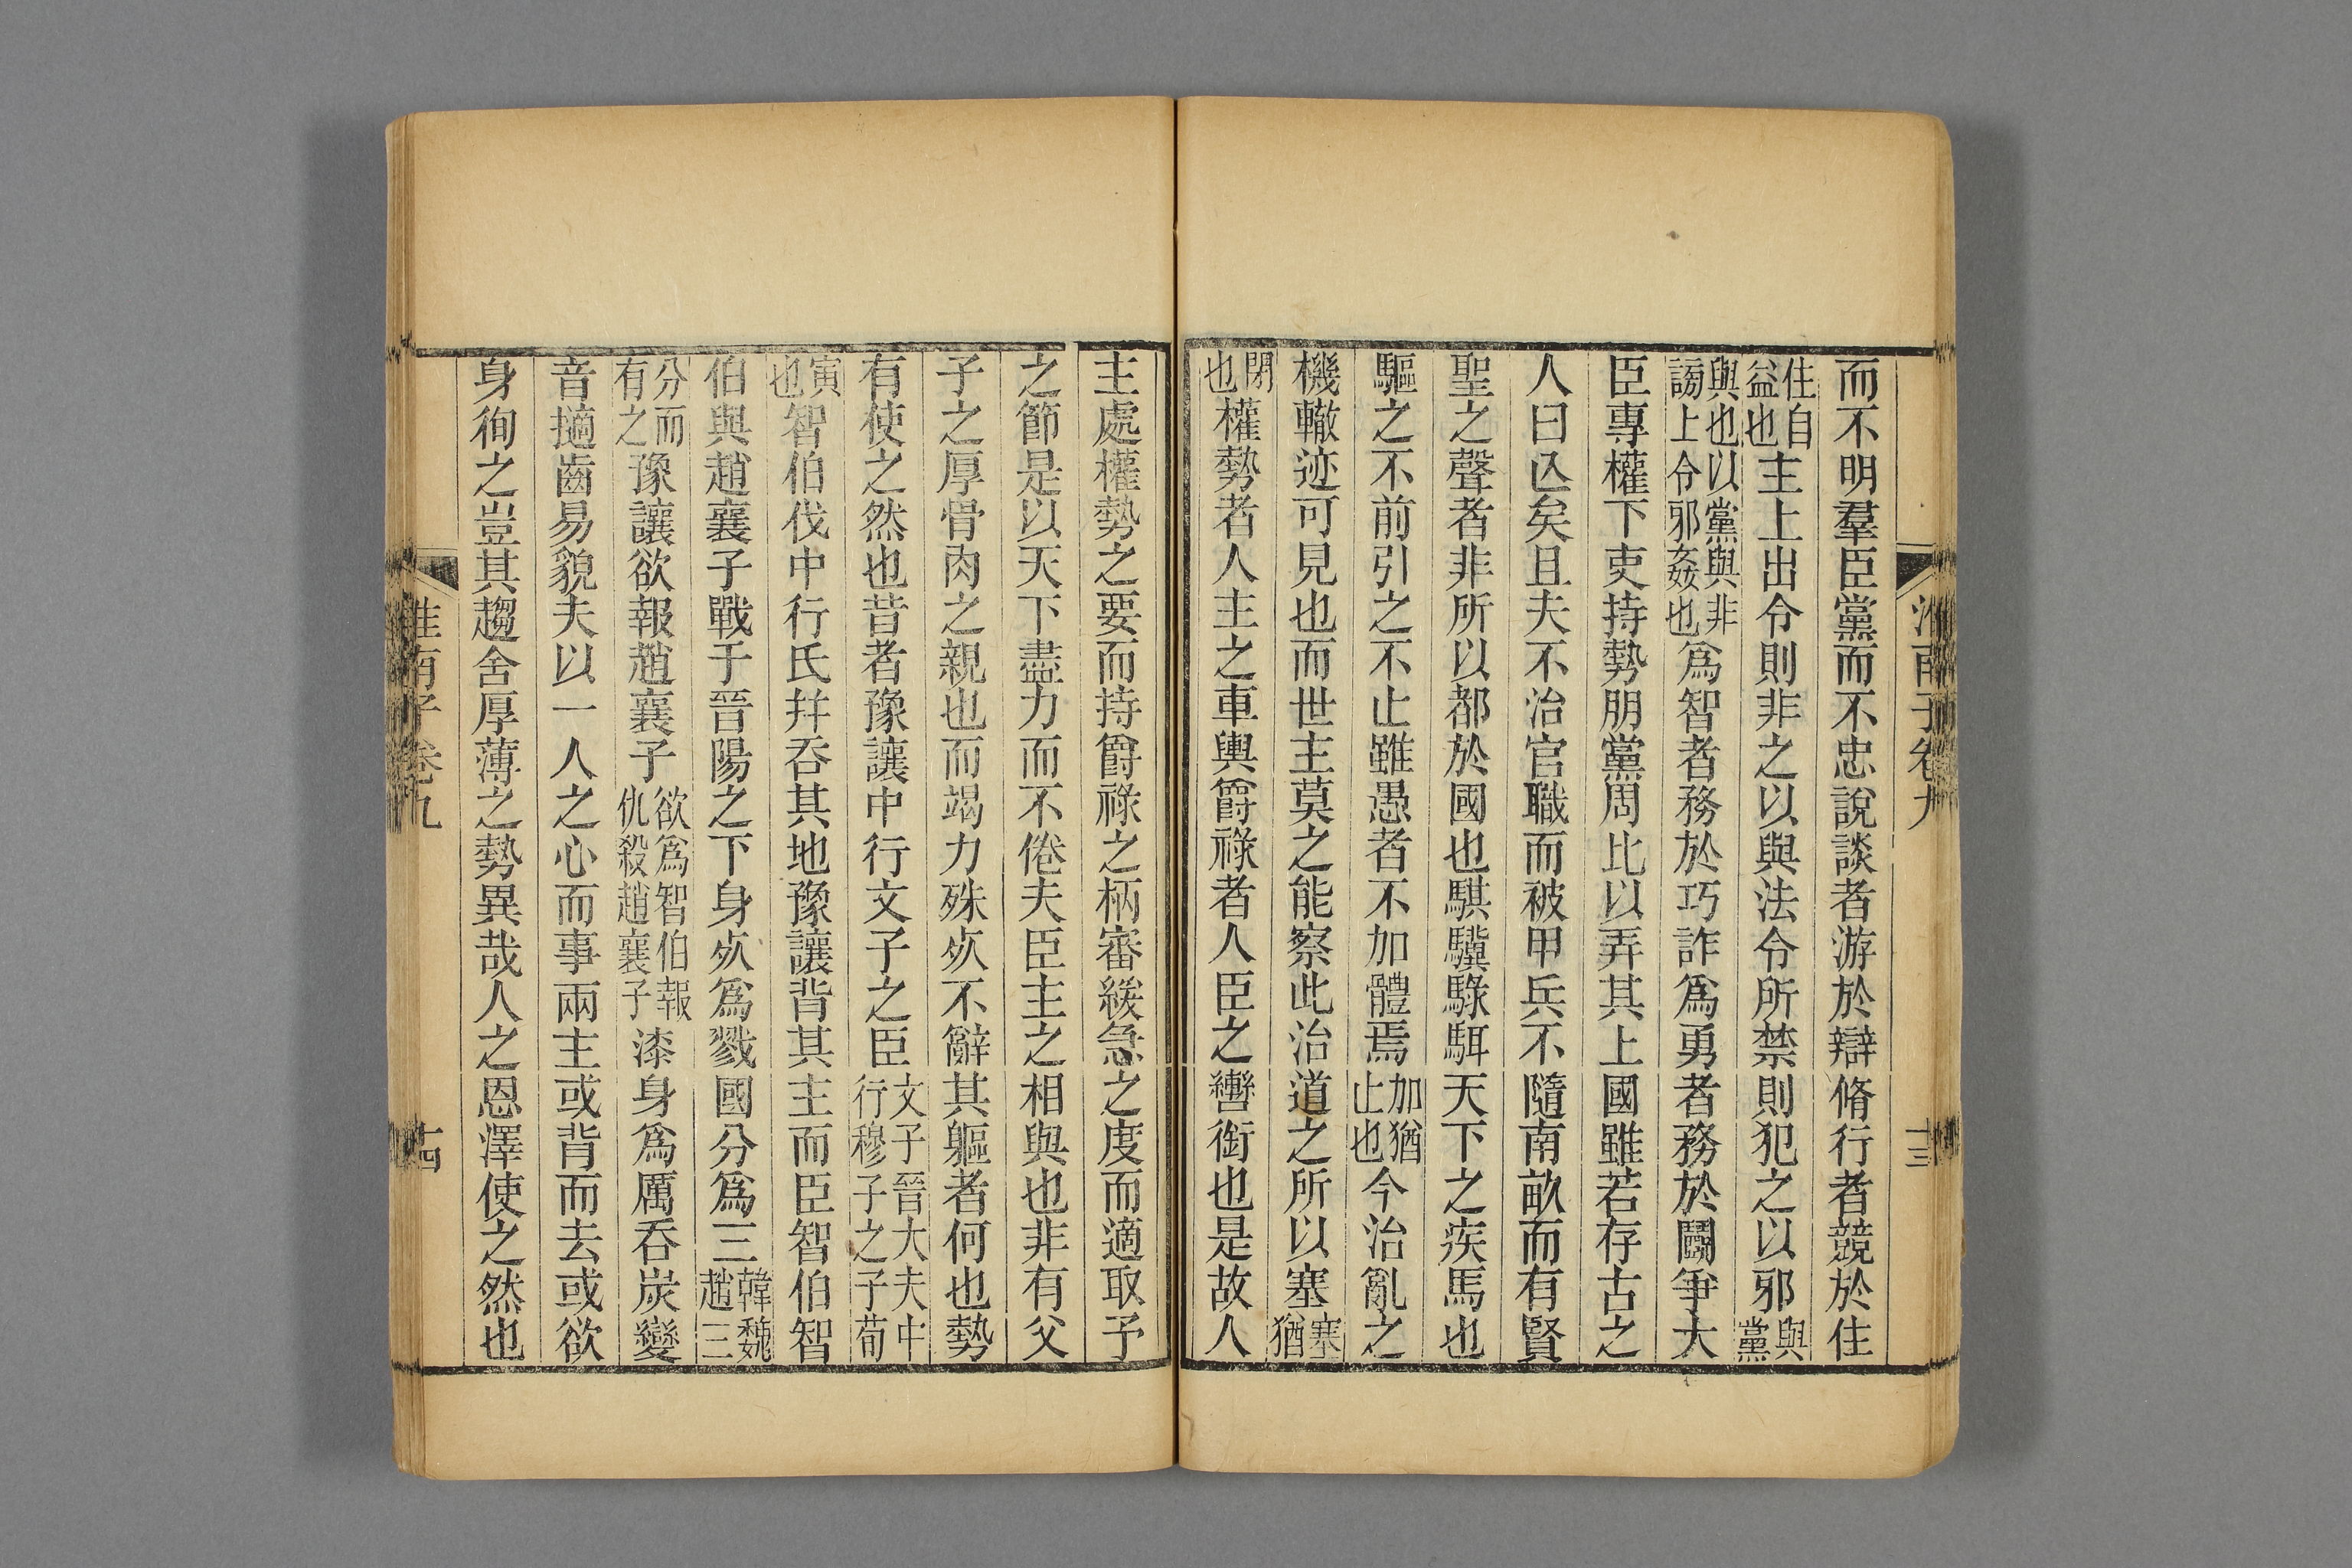 淮南子卷九
十三
而不明羣臣黨而不忠說談者游於辯脩行者競於住
住自益也主上出令則非之以與法令所禁則犯之以邪與黨
與也以黨與非謗上令邪姦也爲智者務於巧詐爲勇者務於鬭爭大
臣專權下吏持勢朋黨周比以弄其上國雖若存古之
人曰亾矣且夫不治官職而被甲兵不隨南畝而有賢
聖之聲者非所以都於國也騏驥騄駬天下之疾馬也
驅之不前引之不止雖愚者不加體焉加猶止也今治亂之
機轍迹可見也而世主莫之能察此治道之所以塞塞猶
閉也權勢者人主之車輿爵祿者人臣之轡銜也是故人
主處權勢之要而持爵祿之柄審緩急之度而適取予
之節是以天下盡力而不倦夫臣主之相與也非有父
子之厚骨肉之親也而竭力殊死不辭其軀者何也勢
有使之然也昔者豫讓中行文子之臣文子晉大夫中行穆子之子荀
寅也智伯伐中行氏幷吞其地豫讓背其主而臣智伯智
伯與趙襄子戰于晉陽之下身死爲戮國分爲三韓魏趙三
分而有之豫讓欲報趙襄子欲爲智伯報仇殺趙襄子漆身爲厲吞炭變
音擿齒易貌夫以一人之心而事兩主或背而去或欲
身徇之豈其趨舍厚薄之勢異哉人之恩澤使之然也
淮南子卷九
十四